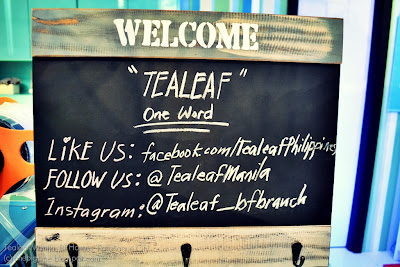 WELCOME
"TEALEAF"
One Word
LIKE US: facebook.com/TealeafPhilippines
FOLLOW US: @TealeafManila
Instagram: @Tealeaf_bfbranch